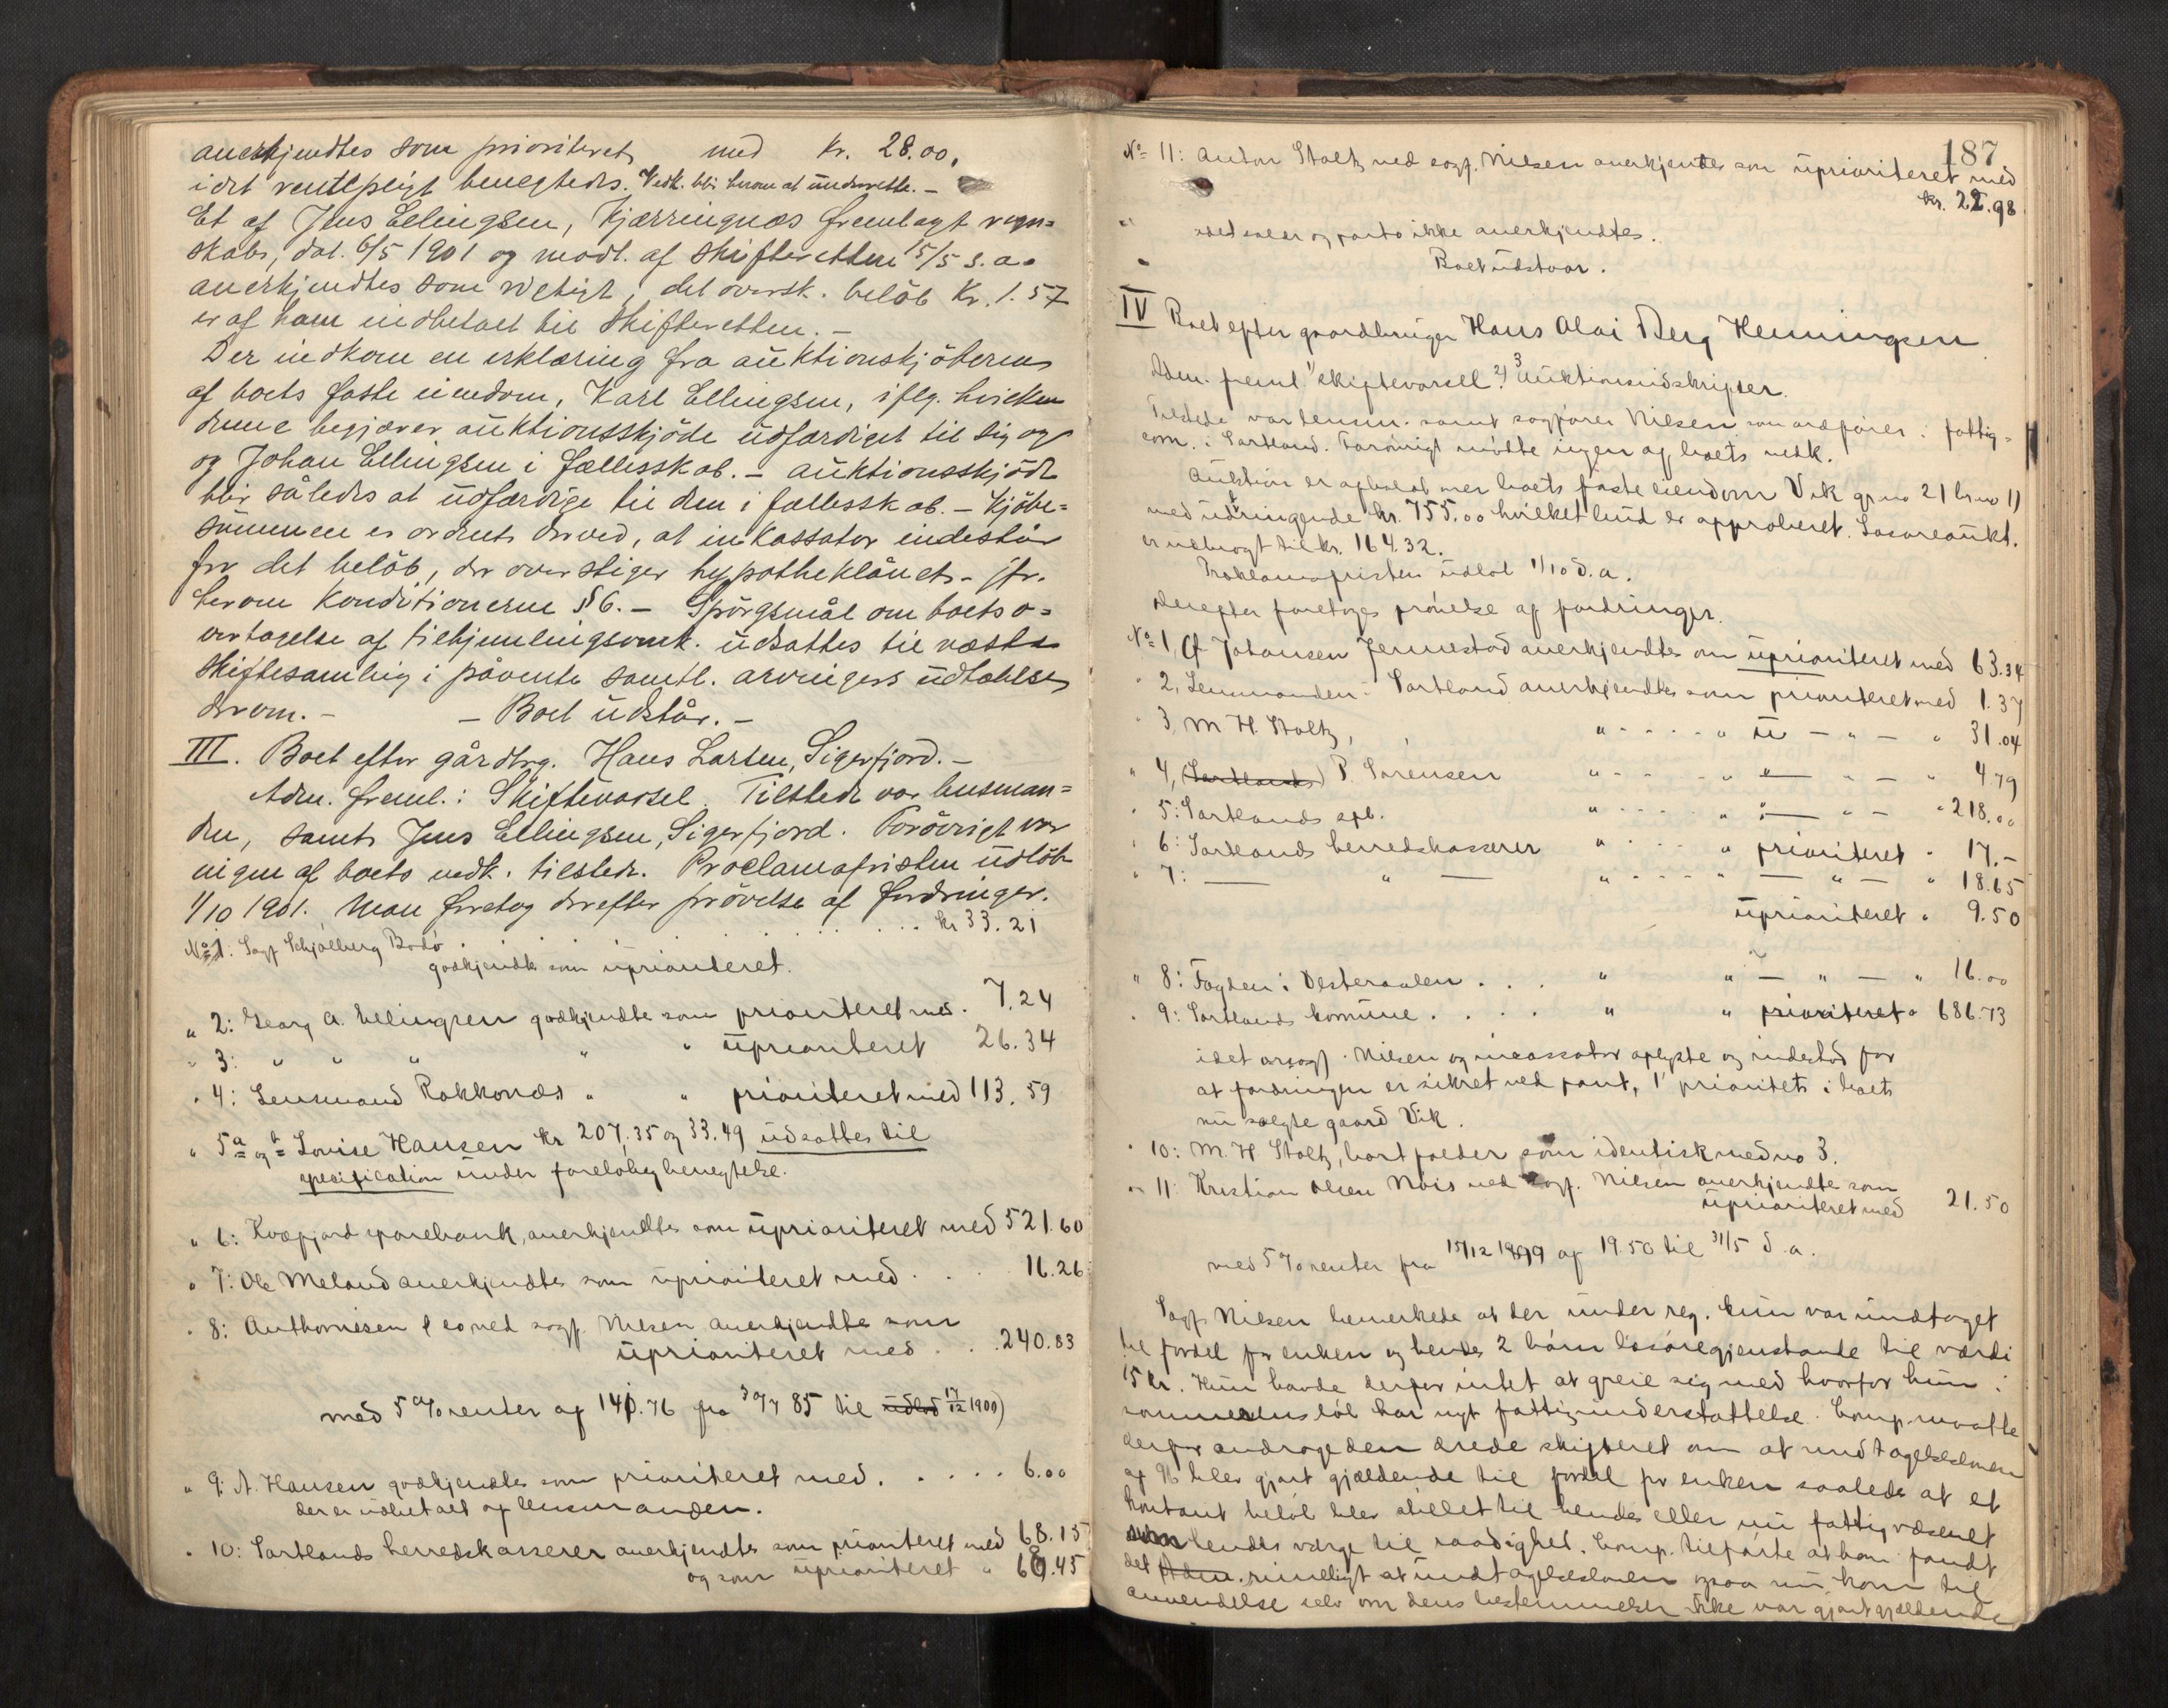 anerkjendtes som prioriteret med kr. 28.00,
idet rentepligt benegtedes. Vedk. bli herom at underrette. –
Et af Jens Ellingsen, Kjærringnæs fremlagt regn=
skabs, dat. 6/5 1901 og modt. af skifteretten 15/5 s. a.
anerkjendtes som rigtigt, det oversk. belöb Kr. 1.57
er af ham indbetalt til skifteretten. –
Der indkom en erklæring fra auktionskjöberen
af boets faste eiendom, Karl Ellingsen, iflg. hvilken
denne begjærer auktionsskjöde udfærdiget til sig og
og Johan Ellingsen i fællesskab. – Auktionsskjöde
blir således at udfærdige til dem i fællesskab. – Kjöbe=
summen er ordnet derved, at inkassator indestår
for det belöb, der overstiger hypotheklånet – jfr.
herom Konditionerne § 6. – Spörgsmål om boets o=
vertagelse af tilhjemlingsomk. udsattes til næste
skiftesamling i påvente samtl. arvingers udtalelse
derom. – – Boet udstår. –
III. Boet efter gårdbrg. Hans Larsen, Sigerfjord. –
Adm. freml.: Skiftevarsel. Tilstede var lensman=
den, samt Jens Ellingsen, Sigerfjord. Forövrigt var
ingen af boets vedk. tilstede. Proclamafristen udlöb
1/10 1901. Man foretog derefter prövelse af fordringer.
No 1: Sagf Schjölberg Bodö . . . . . . . kr 33.21
godkjendtes som uprioriteret.
" 2: Georg A. Ellingsen godkjendtes som prioriteret med . 7.24
" 3: " " " " " uprioriteret 26.34
" 4: Lensmand Rokkonæs " " prioriteret med 113.59
" 5a og b Lovise Hansen kr 207.35 og 33.49 udsattes til
specification under foreløbig benegtelse.
" 6: Kvæfjord sparebank, anerkjendtes som uprioriteret med 521.60
" 7: Ole Meland anerkjendtes som uprioriteret med . . . 16.26
" 8: Anthonisen & co ved sagf. Nilsen anerkjendtes som
uprioriteret med . . 240.83
med 5 % renter af 140.76 fra 30/7 85 til udlod 17/12 1900)
" 9: A. Hansen godkjendtes som prioriteret med . . . . . 6.00
der er udbetalt af lensmanden.
" 10: Sortlands herredskasserer anerkjendtes som prioriteret med 68.15
og som uprioriteret " 68.45
187.
No 11: Anton Stoltz ved sagf. Nilsen anerkjendtes som uprioriteret med
kr. 22.98
idet salær og porto ikke anerkjendtes.
Boet udstaar.
IV Boet efter gaardbruger Hans Olai Berg Henningsen
Adm. freml. 1) skiftevarsel 2) 3 auktionsudskrifter.
Tilstede var lensm. samt sagfører Nilsen som ordfører i fattig=
com. i Sortland. Forøvrigt mødte ingen af boets vedk.
Auktion er afholdt over boets faste eiendom Vik gr no 21 br no 11
med udbringende kr. 755.00 hvilket bud er approberet. Løsøreaukt.
er udbragt til kr. 164.32.
Proklamafristen udløb 1/10 d. a.
Derefter foretoges prøvelse af fordringer.
No 1, A Johansen Jennestad anerkjendtes som uprioriteret med 63.34
" 2, Lensmanden i Sortland anerkjendtes som prioriteret med 1.37
" 3 M H. Stoltz, " . . . . " u – " – " 31.04
" 4, (Sortlands) P. Sørensen " . . . " " – " – " 4.79
" 5: Sortlands spb. " . . . " – " – " 218.00
" 6: Sortlands herredskasserer " . . . " prioriteret " 17.–
" 7: – " – " . . . " – " – " 18.65
uprioriteret " 9.50
" 8: Fogden i Vesteraalen . . . " " – " – " 16.00
" 9: Sortlands komune . . . . " " prioriteret " 686.73
idet ordf. Nilsen og incassator oplyste og indestod for
at fordringen er sikret ved pant, 1' prioritets i boets
nu solgte gaard Vik.
" 10: M. H. Stoltz, bortfalder som identisk med no 3.
" 11: Kristian Olsen Nois ved sagf. Nilsen anerkjendtes som
uprioriteret med 21.50
med 5 % renter fra 15/12 1899 af 19.50 til 31/5 d. a.
Sagf Nilsen bemerkede at der under reg. kun var undtaget
til fordel for enken og hendes 2 børn løsøregjenstande til værdi
15 kr. Hun havde derfor intet at greie sig med hvorfor hun i
sommerens løb har nydt fattigunderstøttelse. Comp. maatte
derfor andrage den ærede skifteret om at undtagelsesloven
af 96 blev gjort gjældende til fordel for enken saaledes at et
kontant beløb blev stillet til hendes eller nu fattigvæsenet
som hendes værge til raadighed. Comp. tilførte at han fandt
det Adm. rimeligt at undtagelsesloven ogsaa nu kom til
anvendelse selv om dens bestemmelser ikke var gjort gjældende